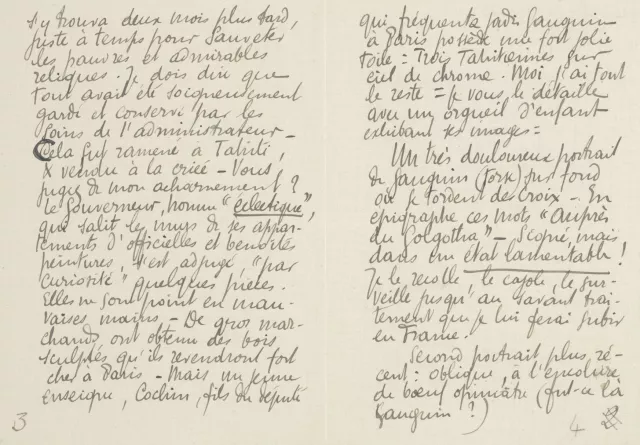 s'y trouva deux mois plus tard,
juste à temps pour sauveter
les pauvres et admirables
reliques. Je dois dire que
tout avait été soigneusement
gardé et conservé par les
soins de l'administrateur —
Cela fut ramené à Tahiti,
x vendu à la criée — Vous
jugez de mon acharnement ?
Le Gouverneur, homme "éclectique",
que salit les murs de ses appar-
tements d'officielles et benoîtes
peintures, s'est adjugé "par
curiosité" quelques pièces.
Elles ne sont point en mau-
vaises mains — De gros mar-
chands ont obtenu des bois
sculptés qu'ils revendront fort
cher à Paris — Mais un jeune
enseigne, Cochin, fils du député
3
qui fréquenta jadis Gauguin
à Paris possède une fort jolie
toile = Trois Tahitiennes sur
ciel de chrome. Moi j'ai tout
le reste = Je vous le détaille
avec un orgueil d'enfant
exhibant ses images =
Un très douloureux portrait
de Gauguin (torse) sur fond
où se tordent des croix — En
épigraphe ces mots "Auprès
du Golgotha" — Signé, mais
dans un état lamentable !
Je le recolle, le cajole, le sur-
veille jusqu'au savant trai-
tement que je lui ferai subir
en France.
Second portrait plus ré-
cent : oblique, à l'encolure
de bœuf opiniâtre (fut-ce là
Gauguin ?)
4